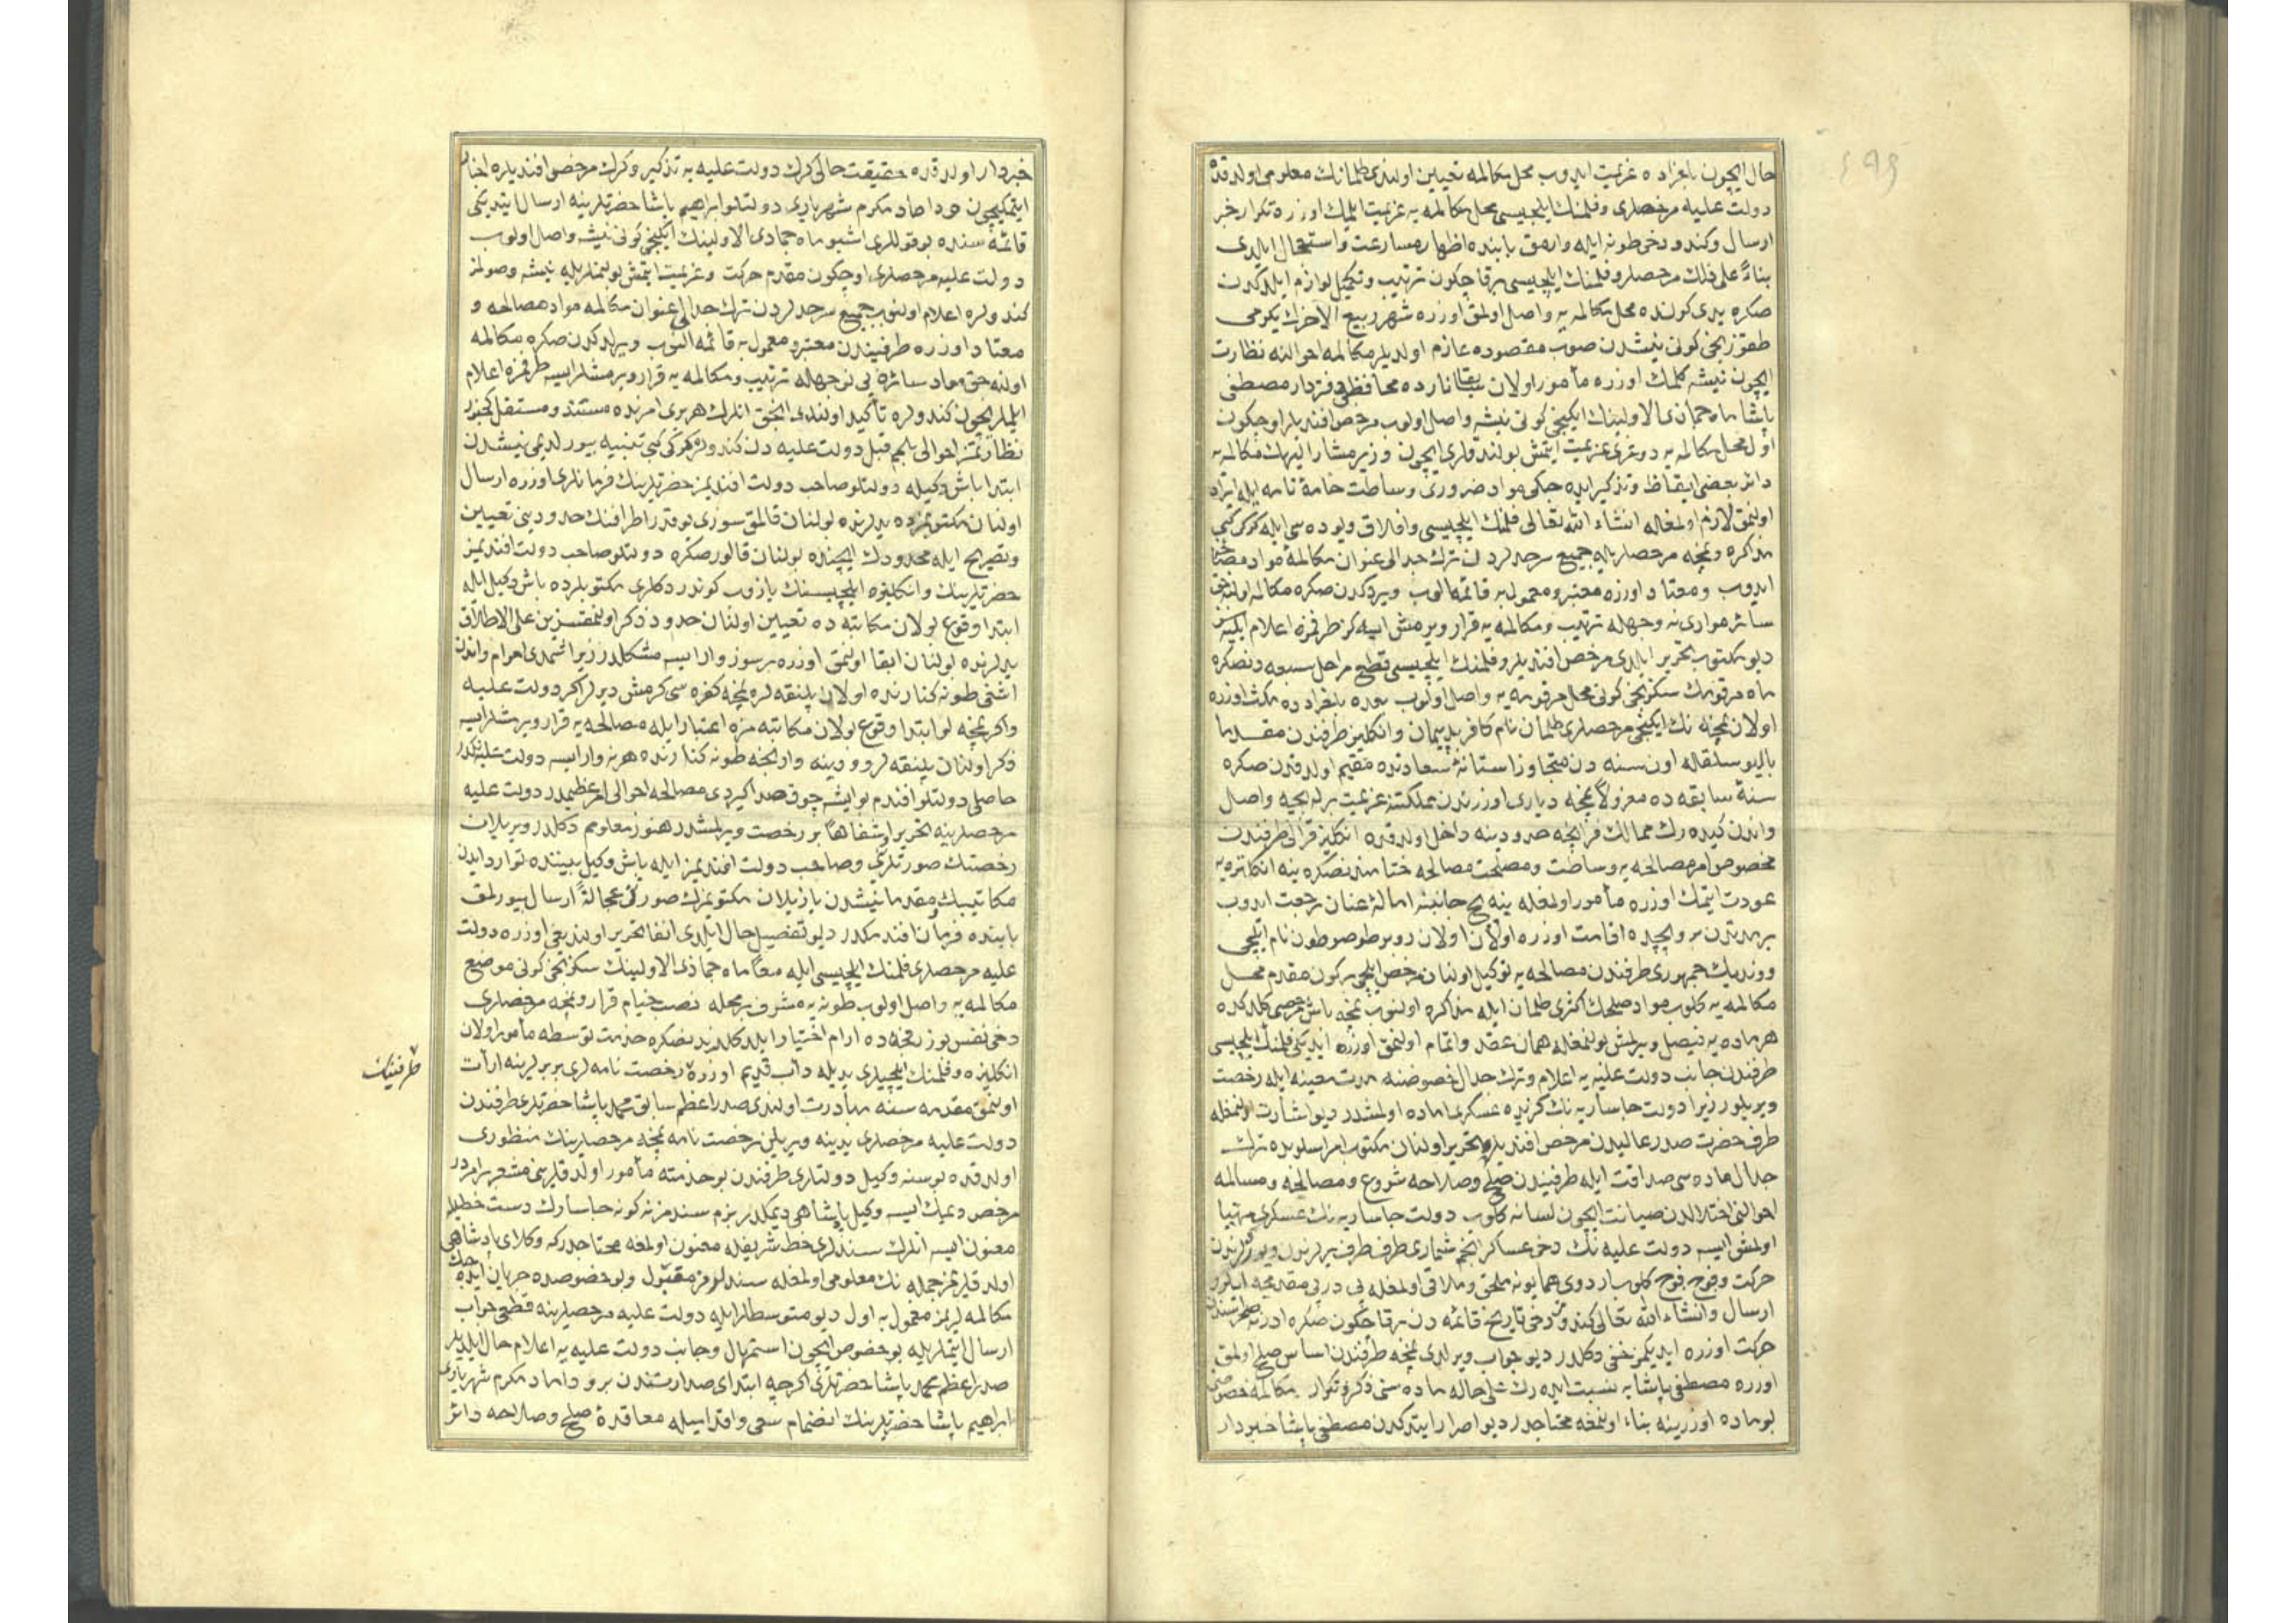 حال ایچون بلغراده عزیمت ایدوب محل مکالمه تعیین اولندیغی طلمانك معلومی اولدقده
دولت علیه مرخصلری وفلمنك ایلچیسی محل مکالمه یه عزیمت ایلمك اوزره تکرار خبر
ارسال وکندو دخی طونه ایله وارمق بابنده اظهار مسارعت واستعجال ایلدی
بناءً علی ذلك مرخصلر وفلمنك ایلچیسی برقاچ کون ترتیب وتکمیل لوازم ایلدکدن
صکره یدی کونده محل مکالمه یه واصل اولمق اوزره شهر ربیع الآخرك یکرمی
طقوزنجی کونی نیشدن صوب مقصوده عازم اولدیلر مکالمه احوالنه نظارت
ایچون نیشه کلمك اوزره مأمور اولان سابقا نارده محافظی دفتردار مصطفی
پاشا ماه جمادی الاولینك ایکنجی کونی نیشه واصل اولوب مرخص افندیلر اوچ کون
اول محل مکالمه یه دوغری عزیمت ایتمش بولندقلری ایچون وزیر مشار الیهك مکالمه یه
دائر بعضی ایقاظ وتذکیر ایده جکی مواد ضروری وساطت خامهٔ نامه ایله ایراد
اولنمق لازم اولمغله انشاء الله تعالی فلمنك ایلچیسی وافلاق ویوده سی ایله کرکی کبی
مذاکره ونمچه مرخصلریله جمیع سرحدلردن ترك جدالی عنوان مکالمهٔ مواد مصالحه
ایدوب ومعتاد اوزره معتبر ومعمول به قائمه الوب ویردکدن صکره مکالمه اولنه جق
سائر موادی نه وجهله ترتیب ومکالمه یه قرار ویرمش ایسه کز طرفمزه اعلام ایلیه سز
دیو مکتوب تحریر ایلدی مرخص افندیلر وفلمنك ایلچیسی قطع مراحل سبعه دنصکره
ماه مرقومك سکزنجی کونی محل مرقومه یه واصل اولوب بعده بلغراده مکث اوزره
اولان نمچه نك ایکنجی مرخصلری طلمان نام کافر بد پیمان وانکلیز طرفندن مقدما
بالیوسلقله اون سنه دن متجاوز آستانهٔ سعادتده مقیم اولدقدن صکره
سنهٔ سابقه ده معزولاً نمچه دیاری اوزرندن مملکتنه عزیمت برله بچه واصل
واندن کیده رك ممالك فرانچه حدودینه داخل اولدقده انکلیز قرالی طرفندن
مخصوص امر مصالحه یه وساطت ومصلحت مصالحه ختامندنصکره ینه انکلتره یه
عودت ایتمك اوزره مأمور اولمغله ینه بچ جانبنه امالهٔ عنان رجعت ایدوب
برمدتدن برو بچده اقامت اوزره اولان روبرطو صوطون نام ایلچی
ووندیك جمهوری طرفندن مصالحه یه توکیل اولنان مرخص ایلچی برکون مقدم محل
مکالمه یه کلوب مواد صلحك اکثری طلمان ایله مذاکره اولنوب نمچه باش مرخصی کلدکده
هرماده یه فیصل ویرلمش بولنمغله همان عقد واتمام اولنمق اوزره ایدیکی فلمنك ایلچیسی
طرفندن جانب دولت علیه یه اعلام وترك جدال خصوصنه مدت معینه ایله رخصت
ویریلور زیرا دولت جاساریه نك کرنده عسکری اماده اولمشدر دیو اشارت اولنمغله
طرف حضرت صدر عالیدن مرخص افندیلره تحریر اولنان مکتوب امر اسلوبده ترك
جدال ماده سی صداقت ایله طرفیندن صلح وصلاحه شروع ومصالحه ومسالمه
احوالنی اختلالدن صیانت ایچون لسانه کلوب دولت جاساریه نك عسکری مهیا
اولمش ایسه دولت علیه نك دخی عساکر انجم شماری طرف طرف یرلرندن ویوردلرندن
حرکت وفوج فوج کلوب اردوی همایونه ملحق وملاقی اولمغله پی درپی مقدمجه ایلرو
ارسال وانشاء الله تعالی کندومز دخی تاریخ قائمه دن برقاچ کون صکره ادرنه صحراسندن
حرکت اوزره ایدیکمز خفی دکلدر دیو جواب ویرلدی نمچه طرفندن اساس صلح اولمق
اوزره مصطفی پاشایه نسبت ایده رك علی حاله ماده سنی ذکر وتکرار مکالمه خصوصی
بوماده اوزرینه بناء اولنمغه محتاجدر دیو اصرار ایتدکدن مصطفی پاشا خبردار
خبردار اولدقده حقیقت حالی کرك دولت علیه یه تذکیر وکرك مرخص افندیلره اخبار
ایتمکیچون داماد مکرم شهریاری دولتلو ابراهیم پاشا حضرتلرینه ارسال ایتدیکی
قائمه سنده بوقوللری اشبو ماه جمادی الاولینك ایکنجی کونی نیشه واصل اولوب
دولت علیه مرخصلری اوچ کون مقدم حرکت وعزیمت ایتمش بولنملریله نیشه وصولمز
کندولره اعلام اولنوب جمیع سرحدلردن ترك جدالی عنوان مکالمه مواد مصالحه و
معتاد اوزره طرفیندن معتبر ومعمول به قائمه النوب ویرلدکدن صکره مکالمه
اولنه جق مواد سائره یی نه وجهله ترتیب ومکالمه یه قرار ویرمشلر ایسه طرفمزه اعلام
ایلملریچون کندولره تأکید اولندی انجق انلرك هربری امرنده مستند ومستقل کچنور
نظارتمز احوالی بلجه قبل دولت علیه دن کندولره کرکی کبی تنبیه بیورلدیمی نیشدن
ابتدا باش وکیله دولتلو صاحب دولت افندیمز حضرتلرینك فرمانلری اوزره ارسال
اولنان مکتوبمزده یدلرنده بولنان قالمق سوزی بوقدر اطرافنك حدودینی تعیین
وتصریح ایله محدودك ایچنده بولنان قالور صکره دولتلو صاحب دولت افندیمز
حضرتلرینك وانکلیزه ایلچیسنك یازوب کوندردکلری مکتوبلرده باش وکیل ایله
ابتدا وقوع بولان مکاتبه ده تعیین اولنان حدود ذکر اولنمقسزین علی الاطلاق
یدلرنده بولنان ابقا اولنمق اوزره برسوز وار ایسه مشکلدر زیرا شمدی اهرام واندن
اشاغی طونه کنارنده اولان پلنقه لره نمچه کفره سی کرمش دیرلر اکر دولت علیه
واکر نمچه لو ابتدا وقوع بولان مکاتبه مزه اعتبار ایله مصالحه یه قرار ویرمشلر ایسه
ذکر اولنان پلنقه لر وودینه وارنجه طونه کنارنده هرنه وار ایسه دولت علیه نکدر
حاصلی دولتلو افندم بو ایشه چوق صدا کیردی مصالحه احوالی امر عظیمدر دولت علیه
مرخصلرینه تحریراً وشفاهاً بر رخصت ویرلمشدر هنوز معلومم دکلدر ویریلان
رخصتك صورتلری وصاحب دولت افندیمز ایله باش وکیل بیننده توارد ایدن
مکاتیبك مقدما نیشدن یازیلان مکتوبمزك صورتی عجالةً ارسال بیورلمق
بابنده فرمان افندمکدر دیو تفصیل حال ایلدی انفا تحریر اولندیغی اوزره دولت
علیه مرخصلری فلمنك ایلچیسی ایله معاً ماه جمادی الاولینك سکزنجی کونی موضع
مکالمه یه واصل اولوب طونه یه مشرف بر محله نصب خیام قرار ونمچه مرخصلری
دخی نفس پوزرفچه ده ارام اختیار ایلدکلرندنصکره خدمت توسطه مأمور اولان
انکلیزه وفلمنك ایلچیلری یدیله دأب قدیم اوزره رخصت نامه لری بربرلرینه ارأت
اولنمق مقدمه سنه مبادرت اولندی صدراعظم سابق محمد پاشا حضرتلری طرفندن
دولت علیه مرخصلری یدینه ویریلن رخصت نامه نمچه مرخصلرینك منظوری
اولدقده بوسنه وکیل دولتلری طرفندن بوخدمته مأمور اولدقلرینی مشعر برامردر
مرخص دیمك ایسه وکیل پادشاهی دیمکدر بزم سندمز نه کونه جاسارك دست خطیله
معنون ایسه انلرك سندلری خط شریفله معنون اولمغه محتاجدر که وکلای پادشاهی
اولدقلری جمله نك معلومی اولمغله سندلرمز مقبول وبو خصوصده جریان ایده جك
مکالمه لریمز معمول به اوله دیو متوسطلر ایله دولت علیه مرخصلرینه قطعی جواب
ارسال ایتملریله بوخصوص ایچون استمهال وجانب دولت علیه یه اعلام حال ایلدیلر
صدراعظم محمد پاشا حضرتلری اکرچه ابتدای صدارتندن برو داماد مکرم شهریاری
ابراهیم پاشا حضرتلرینك انضمام سعی واقدامیله معاقدهٔ صلح وصلاحه دائر
طرفینك